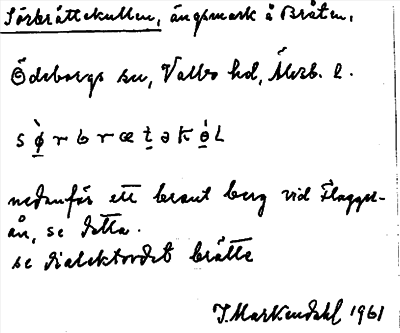 Sörbråttekullen, ängsmark å Bråten,
Ödeborgs sn, Valbo hd, Älvb. l.
nedanför ett brant berg vid Flagget-
ån, se detta.
se dialektordet brätte
J. Markendahl 1961